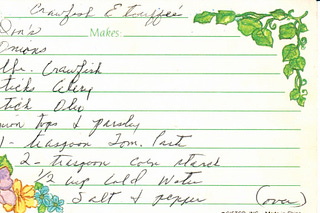 Crawfish Etouffeé
Makes:
Onions
Crawfish
Celery
Oleo
onion tops & parsley
1 - teaspoon Tom. Past
2 - teaspoon corn starch
1/2 cup cold water
Salt & pepper (over)